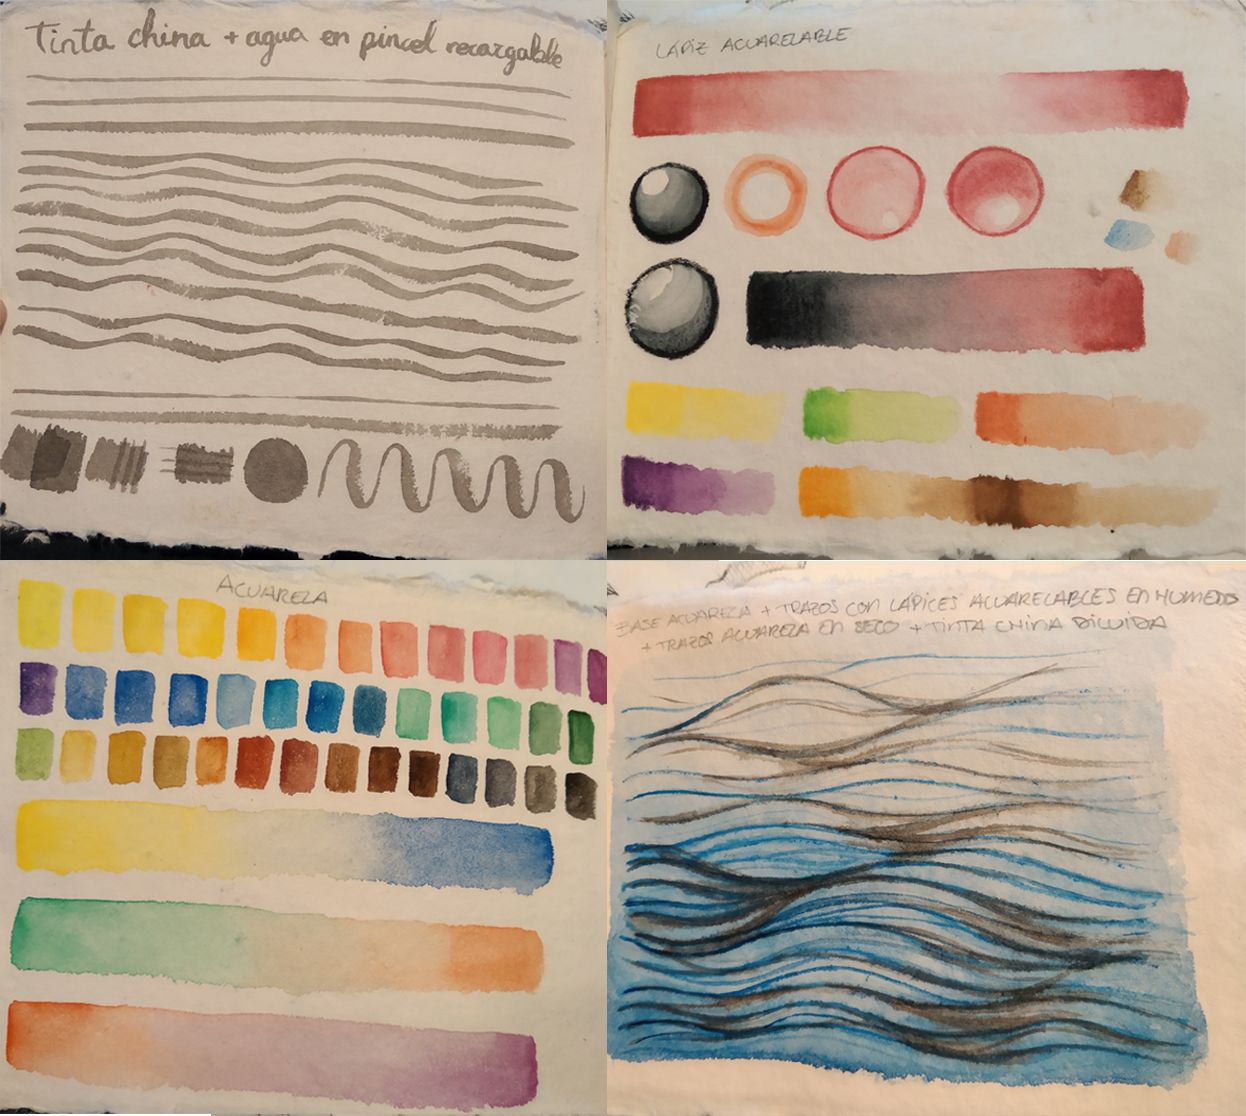 Tinta china + agua en pincel recargable
LÁPIZ ACUARELABLE
ACUARELA
BASE ACUARELA + TRAZOS CON LÁPICES ACUARELABLES EN HUMEDO
+ TRAZOS ACUARELA EN SECO + TINTA CHINA DILUIDA